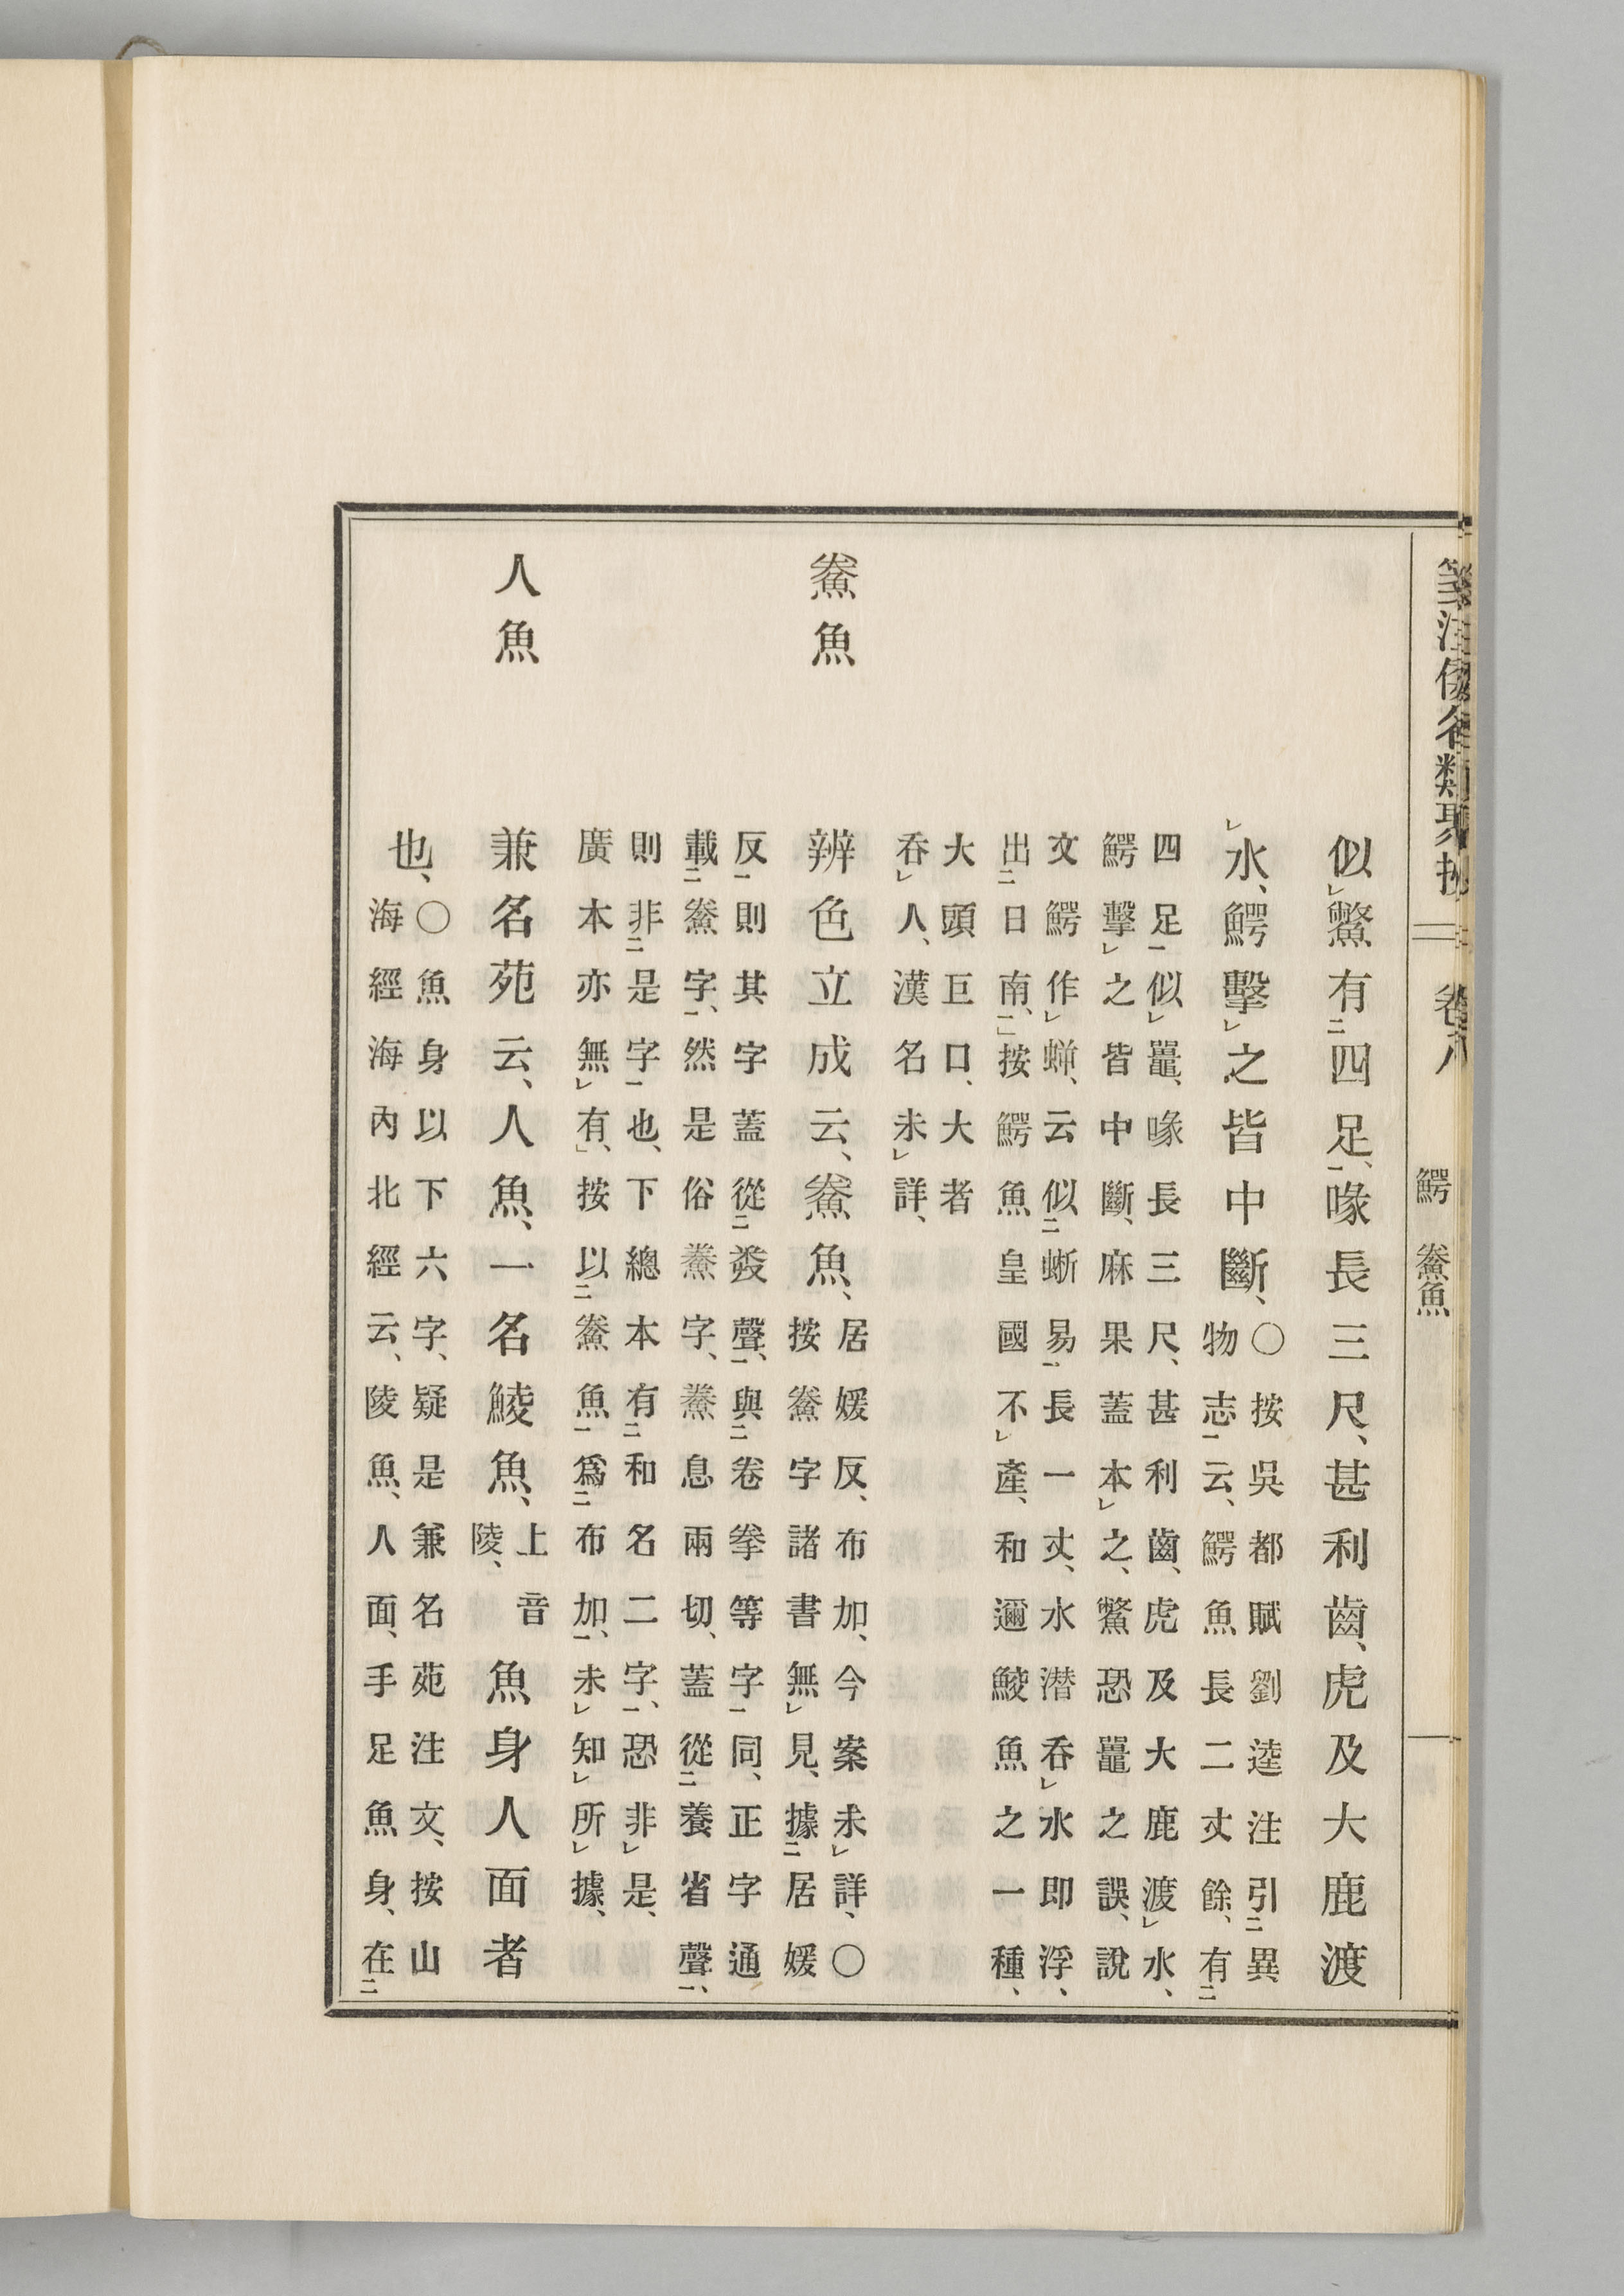 箋注倭名類聚抄　卷八　鰐　鮝魚
似鱉有四足、喙長三尺、甚利齒、虎及大鹿渡
水、鰐擊之皆中斷、
○按吳都賦劉逵注引異
物志云、鰐魚長二丈餘、有
四足似鼉、喙長三尺、甚利齒、虎及大鹿渡水、
鰐擊之皆中斷、麻果蓋本之、鱉恐鼉之誤、說
文鰐作、云似蜥易長一丈、水潛吞水即浮、
出日南、按鰐魚皇國不產、和邇鯪魚之一種、
大頭巨口、大者
吞人、漢名未詳、
鮝魚　辨色立成云、鮝魚、
居媛反、布加、今案未詳、○
按鮝字諸書無見、據居媛
反則其字蓋從聲、與卷拳等字同、正字通
載鮝字、然是俗鯗字、鯗息兩切、蓋從養省聲、
則非是字也、下總本有和名二字、恐非是、
廣本亦無有、按以鮝魚爲布加、未知所據、
人魚　兼名苑云、人魚、一名鯪魚、上音陵、魚身人面者
也、
○魚身以下六字、疑是兼名苑注文、按山
海經海內北經云、陵魚、人面、手足魚身、在